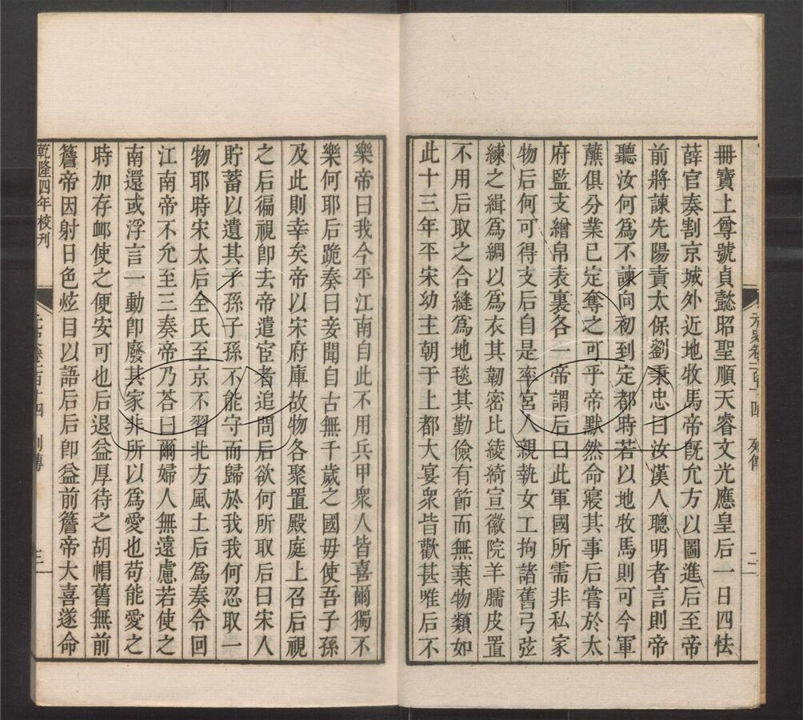 冊寶上尊號貞懿昭聖順天睿文光應皇后一日四怯
薛官奏割京城外近地牧馬帝旣允方以圖進后至帝
前將諫先陽責太保劉秉忠曰汝漢人聰明者言則帝
聽汝何爲不諫向初到定都時若以地牧馬則可今軍
蘸俱分業已定奪之可乎帝默然命寢其事后嘗於太
府監支繒帛表裏各一帝謂后曰此軍國所需非私家
物后何可得支后自是率宮人親執女工拘諸舊弓弦
練之緝爲綢以爲衣其韌密比綾綺宣徽院羊臑皮置
不用后取之合縫爲地毯其勤儉有節而無棄物類如
此十三年平宋幼主朝于上都大宴衆皆歡甚唯后不
元史卷一百十四 列傳 二
樂帝曰我今平江南自此不用兵甲衆人皆喜爾獨不
樂何耶后跪奏曰妾聞自古無千歲之國毋使吾子孫
及此則幸矣帝以宋府庫故物各聚置殿庭上召后視
之后徧視卽去帝遣宦者追問后欲何所取后曰宋人
貯蓄以遺其子孫子孫不能守而歸於我我何忍取一
物耶時宋太后全氏至京不習北方風土后爲奏令回
江南帝不允至三奏帝乃荅曰爾婦人無遠慮若使之
南還或浮言一動卽廢其家非所以爲愛也苟能愛之
時加存邺使之便安可也后退益厚待之胡帽舊無前
簷帝因射日色炫目以語后后卽益前簷帝大喜遂命
乾隆四年校刊
元史卷一百十四 列傳 三